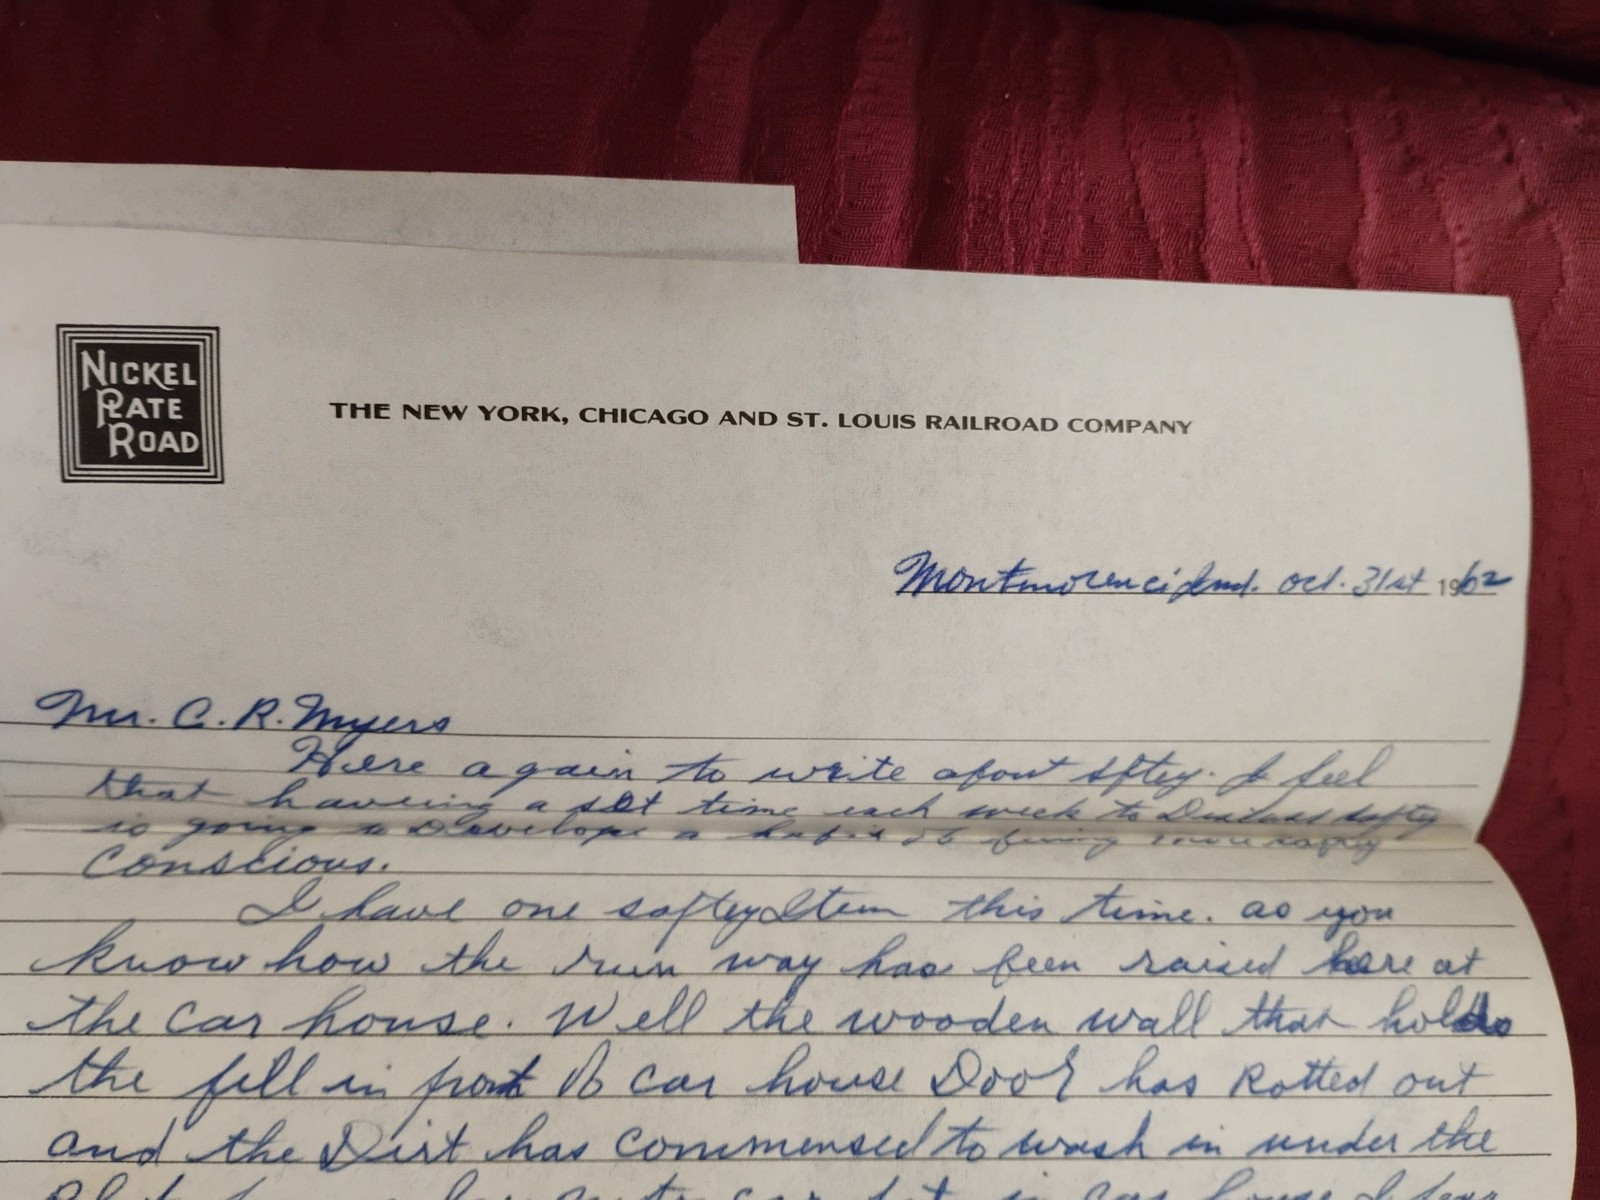 NICKEL
PLATE
ROAD
THE NEW YORK, CHICAGO AND ST. LOUIS RAILROAD COMPANY
Montmorenci Ind. Oct. 31st 1962
Mr. C. R. Myers
Here again to write about sftey. I feel
that haveing a set time each week to Discuss saftey
is going to Develope a habit of being more saftey
Conscious.
I have one saftey Item this time. as you
know how the run way has been raised here at
the car house. Well the wooden wall that holds
the fill in front of car house Door has Rotted out
and the Dirt has commensed to wash in under the
car house I